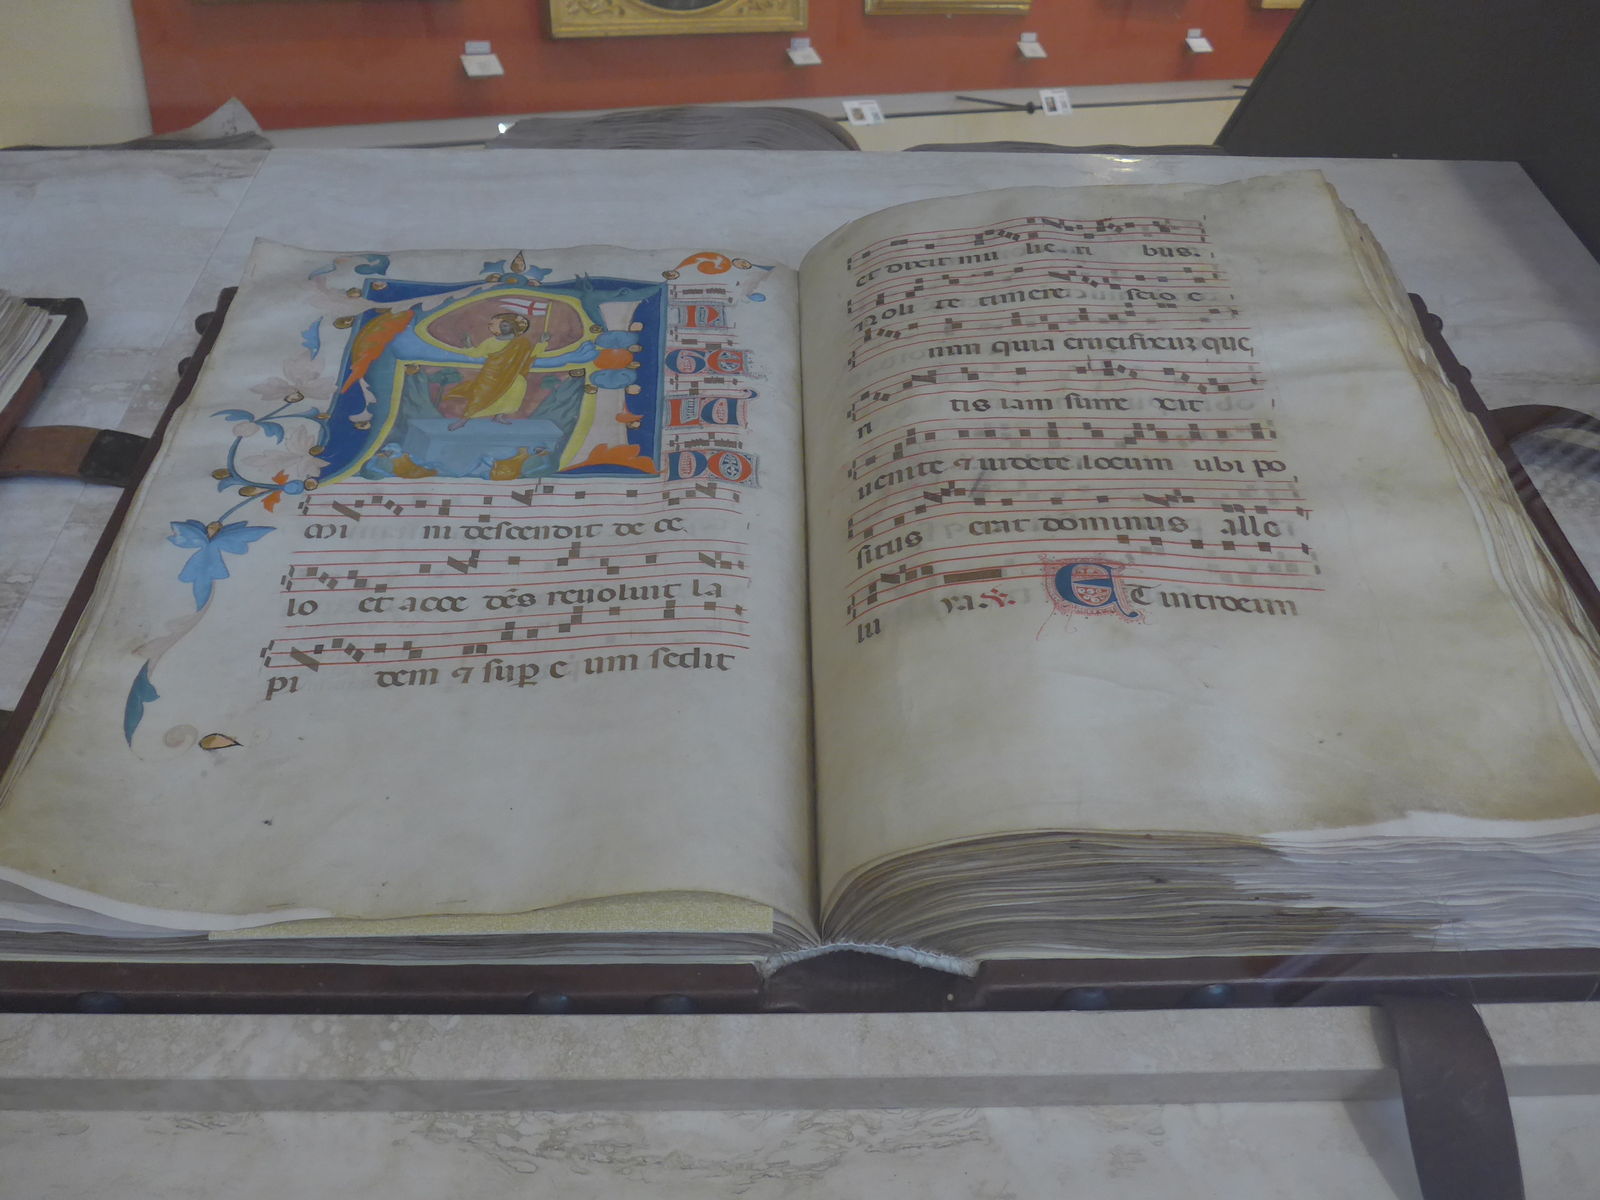 A N
GE
LV
DO
Mi ni descendit de ce
lo et acce dēs reuoluit la
pi dem ⁊ suꝑ e um sedit
et dixit mu lie ri bus.
Noli te timere scio e
nim quia crucifixuz que
ri tis iam surre xit
uenite ⁊ uidete locum ubi po
situs erat dominus alle
lu ya. ℣. ET introeun